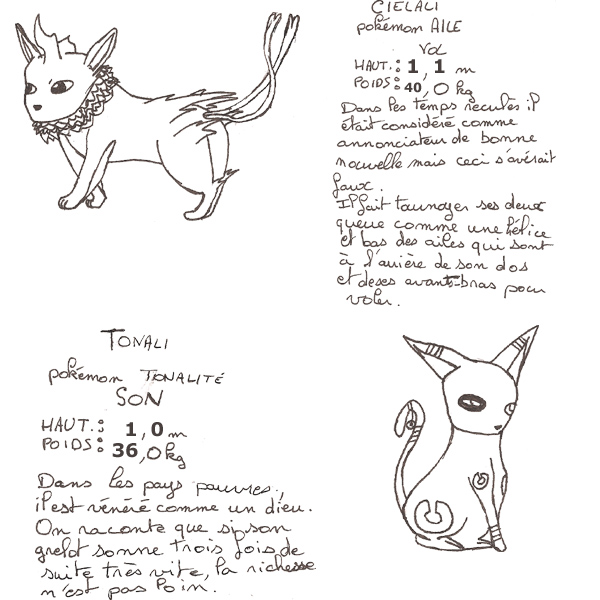 CIELALI
pokémon AILE
Vol
HAUT.: 1,1 m
POIDS: 40,0 kg
Dans les temps reculés il
était considéré comme
annonciateur de bonne
nouvelle mais ceci s'avérait
faux.
Il fait tournoyer ses deux
queue comme une hélice
et bas des ailes qui sont
à l'arrière de son dos
et de ses avant-bras pour
voler.
TONALI
pokémon TONALITÉ
SON
HAUT.: 1,0 m
POIDS: 36,0 kg
Dans les pays pauvres,
il est vénéré comme un dieu.
On raconte que si son
grelot sonne trois fois de
suite très vite, la richesse
n'est pas loin.